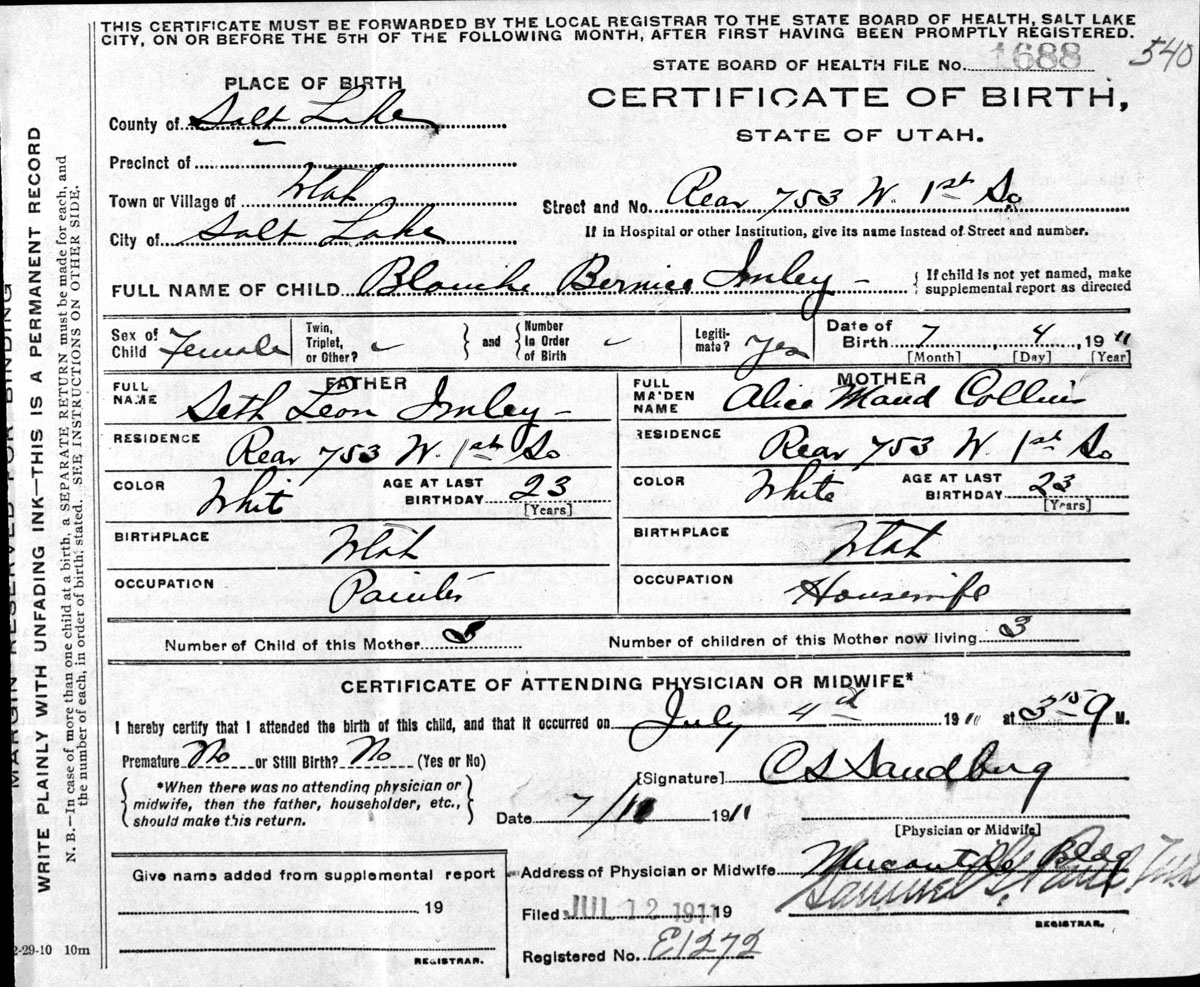 THIS CERTIFICATE MUST BE FORWARDED BY THE LOCAL REGISTRAR TO THE STATE BOARD OF HEALTH, SALT LAKE
CITY, ON OR BEFORE THE 5TH OF THE FOLLOWING MONTH, AFTER FIRST HAVING BEEN PROMPTLY REGISTERED.
STATE BOARD OF HEALTH FILE No. 1688 540
PLACE OF BIRTH
CERTIFICATE OF BIRTH,
STATE OF UTAH.
County of Salt Lake
Precinct of
Town or Village of Utah
Street and No. Rear 753 W. 1st So.
City of Salt Lake
If in Hospital or other Institution, give its name instead of Street and number.
FULL NAME OF CHILD Blanche Bernice Imley - { If child is not yet named, make
supplemental report as directed
Sex of Child Female Twin, Triplet, or Other? - } and { Number in Order of Birth - Legiti-mate? Yes Date of Birth 7 4, 1911
[Month] [Day] [Year]
FATHER
FULL NAME Seth Leon Imley -
RESIDENCE Rear 753 W. 1st So
COLOR Whit AGE AT LAST BIRTHDAY 23
[Years]
BIRTHPLACE Utah
OCCUPATION Painter
MOTHER
FULL MAIDEN NAME Alice Maud Collins
RESIDENCE Rear 753 W. 1st So
COLOR White AGE AT LAST BIRTHDAY 23
[Years]
BIRTHPLACE Utah
OCCUPATION Housewife
Number of Child of this Mother 3 Number of children of this Mother now living 3
CERTIFICATE OF ATTENDING PHYSICIAN OR MIDWIFE*
I hereby certify that I attended the birth of this child, and that it occurred on July 4th 1911 at 3 15 M.
Premature No or Still Birth? No (Yes or No)
{ *When there was no attending physician or
midwife, then the father, householder, etc.,
should make this return. }
[Signature] C S Sandberg
Date 7/ 1911
[Physician or Midwife]
Give name added from supplemental report
19
REGISTRAR.
Address of Physician or Midwife Mercantile Bldg
Filed JUL 12 1911 19
REGISTRAR.
Registered No. E1272
MARGIN RESERVED FOR BINDING
WRITE PLAINLY WITH UNFADING INK—THIS IS A PERMANENT RECORD
N. B.—In case of more than one child at a birth, a SEPARATE RETURN must be made for each, and
the number of each, in order of birth, stated. SEE INSTRUCTIONS ON OTHER SIDE.
2-29-10 10m